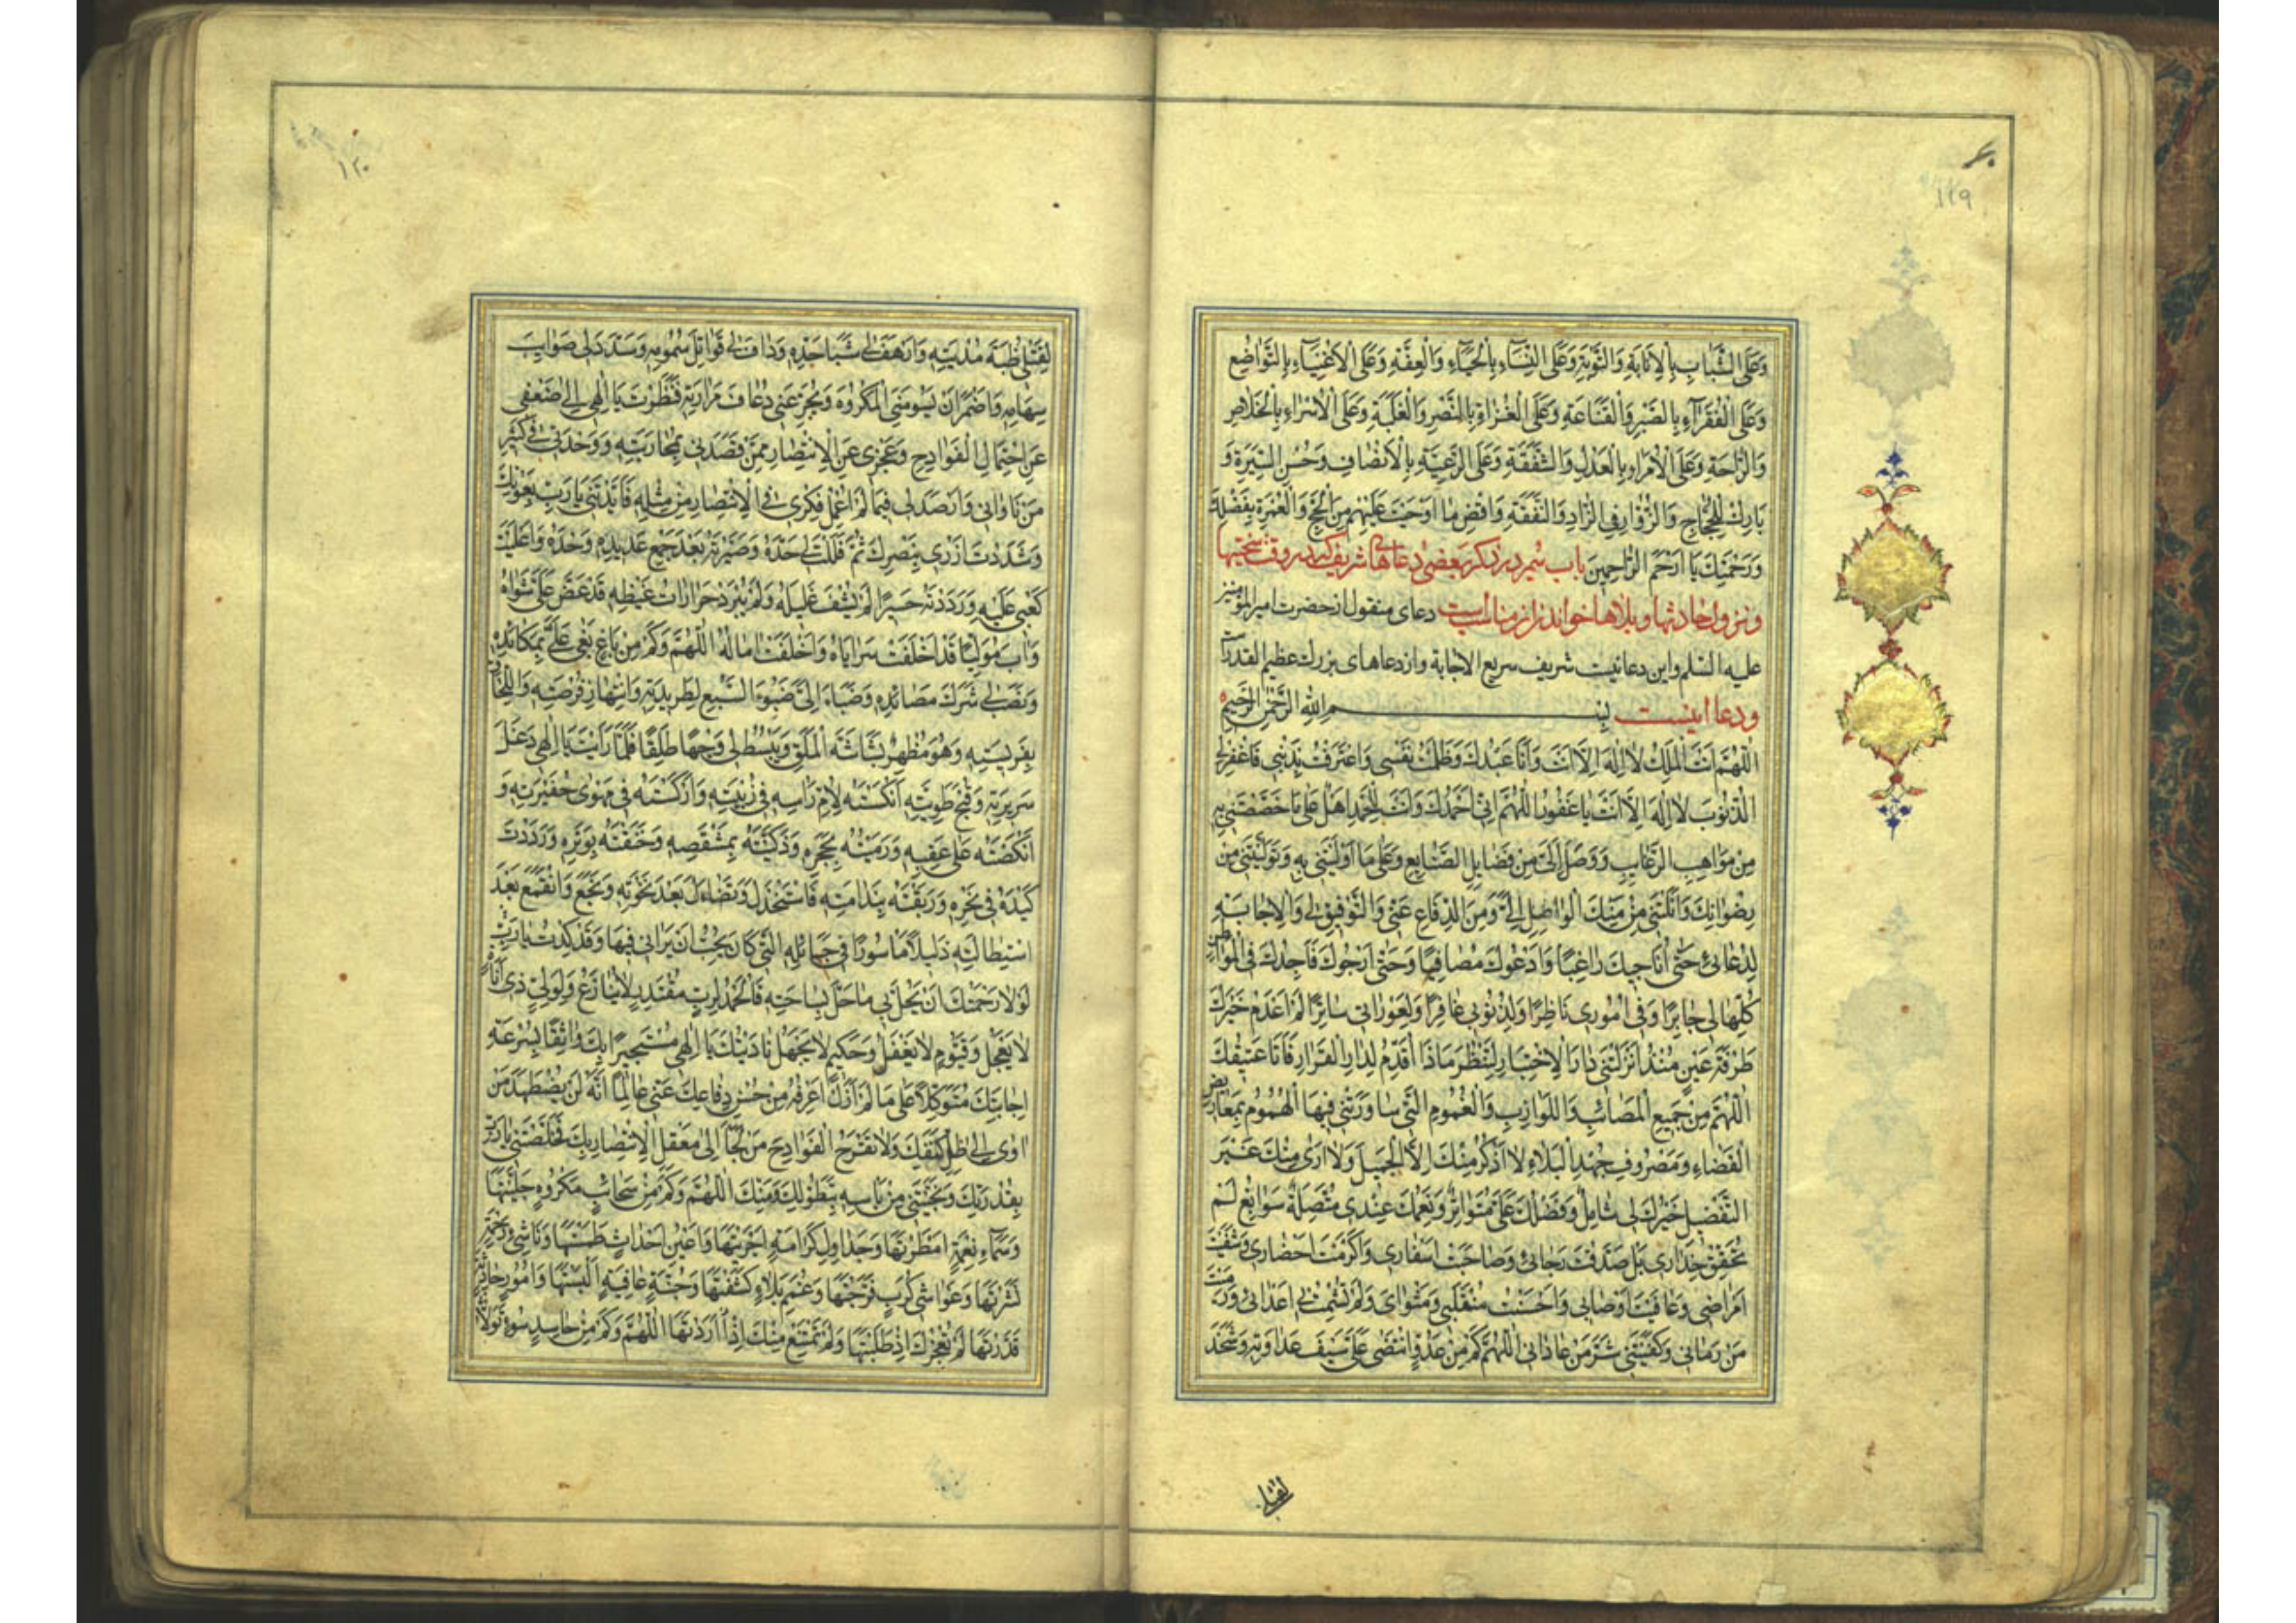 ۶۰
۱۱۹
وَعَلَى الشَّبَابِ بِالْاِنَابَةِ وَالتَّوْبَةِ وَعَلَى النِّسَاءِ بِالْحَيَاءِ وَالْعِفَّةِ وَعَلَى الْاَغْنِيَاءِ بِالتَّوَاضُعِ
وَعَلَى الْفُقَرَاءِ بِالصَّبْرِ وَالْقَنَاعَةِ وَعَلَى الْغُزَاةِ بِالنَّصْرِ وَالْغَلَبَةِ وَعَلَى الْاُسَرَاءِ بِالْخَلَاصِ
وَالرَّاحَةِ وَعَلَى الْاُمَرَاءِ بِالْعَدْلِ وَالشَّفَقَةِ وَعَلَى الرَّعِيَّةِ بِالْاِنْصَافِ وَحُسْنِ السِّيرَةِ وَ
بَارِكْ لِلْحُجَّاجِ وَالزُّوَّارِ فِي الزَّادِ وَالنَّفَقَةِ وَاقْضِ مَا اَوْجَبْتَ عَلَيْهِمْ مِنَ الْحَجِّ وَالْعُمْرَةِ بِفَضْلِكَ
وَرَحْمَتِكَ يَا اَرْحَمَ الرَّاحِمِينَ باب سیم در ذکر بعضی دعاها شریف که در وقت سختیها
و نزول حادثها و بلاها خواندن از مناسبست دعای منقول از حضرت امیرالمؤمنین
علیه السلم و این دعائیست شریف سریع الاجابة و از دعاهای بزرك عظیم القدر است
و دعا اینست بِسْمِ اللهِ الرَّحْمٰنِ الرَّحِيمِ
اَللّٰهُمَّ اَنْتَ الْمَلِكُ لَا اِلٰهَ اِلَّا اَنْتَ وَاَنَا عَبْدُكَ ظَلَمْتُ نَفْسِي وَاعْتَرَفْتُ بِذَنْبِي فَاغْفِرْ لِي
الذُّنُوبَ لَا اِلٰهَ اِلَّا اَنْتَ يَا غَفُورُ اَللّٰهُمَّ اِنِّي اَحْمَدُكَ وَاَنْتَ لِلْحَمْدِ اَهْلٌ عَلَى مَا خَصَصْتَنِي بِهِ
مِنْ مَوَاهِبِ الرَّغَايِبِ وَوَصَلَ اِلَيَّ مِنْ فَضَايِلِ الصَّنَايِعِ وَعَلَى مَا اَوْلَيْتَنِي بِهِ وَتَوَلَّيْتَنِي مِنْ
رِضْوَانِكَ وَاَنَلْتَنِي مِنْ مَنِّكَ الْوَاصِلِ اِلَيَّ وَمِنَ الدِّفَاعِ عَنِّي وَالتَّوْفِيقِ لِي وَالْاِجَابَةِ
لِدُعَائِي حَتَّى اُنَاجِيَكَ رَاغِبًا وَاَدْعُوَكَ مُصَافِيًا وَحَتَّى اَرْجُوَكَ فَاَجِدُكَ فِي الْمَوَاطِنِ
كُلِّهَا لِي جَابِرًا وَفِي اُمُورِي نَاظِرًا وَلِذُنُوبِي غَافِرًا وَلِعَوْرَاتِي سَاتِرًا لَمْ اَعْدَمْ خَيْرَكَ
طَرْفَةَ عَيْنٍ مُنْذُ اَنْزَلْتَنِي دَارَ الْاِخْتِبَارِ لِتَنْظُرَ مَاذَا اُقَدِّمُ لِدَارِ الْقَرَارِ فَاَنَا عَتِيقُكَ
اَللّٰهُمَّ مِنْ جَمِيعِ الْمَصَائِبِ وَاللَّوَازِبِ وَالْغُمُومِ الَّتِي سَاوَرَتْنِي فِيهَا الْهُمُومُ بِمَعَارِيضِ
الْقَضَاءِ وَمَصْرُوفِ جَهْدِ الْبَلَاءِ لَا اَذْكُرُ مِنْكَ اِلَّا الْجَمِيلَ وَلَا اَرَى مِنْكَ غَيْرَ
التَّفْضِيلِ خَيْرُكَ لِي شَامِلٌ وَفَضْلُكَ عَلَيَّ مُتَوَاتِرٌ وَنِعَمُكَ عِنْدِي مُتَّصِلَةٌ سَوَابِغُ لَمْ
تُحَقِّقْ حِذَارِي بَلْ صَدَّقْتَ رَجَائِي وَصَاحَبْتَ اَسْفَارِي وَاَكْرَمْتَ اَحْضَارِي وَشَفَيْتَ
اَمْرَاضِي وَعَافَيْتَ اَوْصَابِي وَاَحْسَنْتَ مُنْقَلَبِي وَمَثْوَايَ وَلَمْ تُشْمِتْ بِي اَعْدَائِي وَرَمَيْتَ
مَنْ رَمَانِي وَكَفَيْتَنِي شَرَّ مَنْ عَادَانِي اَللّٰهُمَّ كَمْ مِنْ عَدُوٍّ انْتَضَى عَلَيَّ سَيْفَ عَدَاوَتِهِ وَشَحَذَ
لقتلی
۱۲۰
لِقَتْلِي ظُبَةَ مُدْيَتِهِ وَاَرْهَفَ لِي شَبَا حَدِّهِ وَدَافَ لِي قَوَاتِلَ سُمُومِهِ وَسَدَّدَ لِي صَوَايِبَ
سِهَامِهِ وَاَضْمَرَ اَنْ يَسُومَنِي الْمَكْرُوهَ وَيُجَرِّعَنِي ذُعَافَ مَرَارَتِهِ فَنَظَرْتَ يَا اِلٰهِي اِلَى ضَعْفِي
عَنِ احْتِمَالِ الْفَوَادِحِ وَعَجْزِي عَنِ الْاِنْتِصَارِ مِمَّنْ قَصَدَنِي بِمُحَارَبَتِهِ وَوَحْدَتِي فِي كَثِيرِ
مَنْ نَاوَانِي وَاَرْصَدَ لِي فِيمَا لَمْ اُعْمِلْ فِكْرِي فِي الْاِنْتِصَارِ مِنْ مِثْلِهِ فَاَيَّدْتَنِي يَا رَبِّ بِعَوْنِكَ
وَشَدَدْتَ اَزْرِي بِنَصْرِكَ ثُمَّ فَلَلْتَ لِي حَدَّهُ وَصَيَّرْتَهُ بَعْدَ جَمْعِ عَدِيدِهِ وَحْدَهُ وَاَعْلَيْتَ
كَعْبِي عَلَيْهِ وَرَدَدْتَهُ حَسِيرًا لَمْ يَشْفِ غَلِيلَهُ وَلَمْ تَبْرُدْ حَرَارَاتُ غَيْظِهِ قَدْ عَضَّ عَلَى شَوَاهُ
وَاٰبَ مُوَلِّيًا قَدْ اَخْلَفَتْ سَرَايَاهُ وَاَخْلَفَتْ اٰمَالُهُ اَللّٰهُمَّ وَكَمْ مِنْ بَاغٍ بَغَى عَلَيَّ بِمَكَائِدِهِ
وَنَصَبَ لِي شَرَكَ مَصَائِدِهِ وَضَبَاَ اِلَيَّ ضَبُوءَ السَّبُعِ لِطَرِيدَتِهِ وَانْتِهَازِ فُرْصَتِهِ وَاللِّحَاقِ
بِفَرِيسَتِهِ وَهُوَ مُظْهِرٌ بَشَاشَةَ الْمَلَقِ وَيَبْسُطُ لِي وَجْهًا طَلِقًا فَلَمَّا رَاَيْتَ يَا اِلٰهِي دَغَلَ
سَرِيرَتِهِ وَقُبْحَ طَوِيَّتِهِ اَنْكَسْتَهُ لِاُمِّ رَاْسِهِ فِي زُبْيَتِهِ وَاَرْكَسْتَهُ فِي مَهْوَى حَفِيرَتِهِ وَ
اَنْكَصْتَهُ عَلَى عَقِبِهِ وَرَمَيْتَهُ بِحَجَرِهِ وَذَكَّيْتَهُ بِمِشْقَصِهِ وَخَنَقْتَهُ بِوَتَرِهِ وَرَدَدْتَ
كَيْدَهُ فِي نَحْرِهِ وَرَبَقْتَهُ بِنَدَامَتِهِ فَاسْتَخْذَلَ وَتَضَاءَلَ بَعْدَ نَخْوَتِهِ وَبَخَعَ وَانْقَمَعَ بَعْدَ
اسْتِطَالَتِهِ ذَلِيلًا مَاْسُورًا فِي حَبَائِلِهِ الَّتِي كَانَ يُحِبُّ اَنْ يَرَانِي فِيهَا وَقَدْ كِدْتُ يَا رَبِّ
لَوْلَا رَحْمَتُكَ اَنْ يَحُلَّ بِي مَا حَلَّ بِسَاحَتِهِ فَالْحَمْدُ لِرَبٍّ مُقْتَدِرٍ لَا يُنَازَعُ وَلِوَلِيٍّ ذِي اَنَاةٍ
لَا يَعْجَلُ وَقَيُّومٍ لَا يَغْفُلُ وَحَكِيمٍ لَا يَجْهَلُ نَادَيْتُكَ يَا اِلٰهِي مُسْتَجِيرًا بِكَ وَاثِقًا بِسُرْعَةِ
اِجَابَتِكَ مُتَوَكِّلًا عَلَى مَا لَمْ اَزَلْ اَعْرِفُهُ مِنْ حُسْنِ دِفَاعِكَ عَنِّي عَالِمًا اَنَّهُ لَنْ يُضْطَهَدَ مَنْ
اٰوَى اِلَى ظِلِّ كَنَفِكَ وَلَا تَقْرَعُ الْفَوَادِحُ مَنْ لَجَاَ اِلَى مَعْقِلِ الْاِنْتِصَارِ بِكَ فَخَلَّصْتَنِي يَا رَبِّ
بِقُدْرَتِكَ وَنَجَّيْتَنِي مِنْ بَاْسِهِ بِتَطَوُّلِكَ وَمَنِّكَ اَللّٰهُمَّ وَكَمْ مِنْ سَحَائِبِ مَكْرُوهٍ جَلَّيْتَهَا
وَسَمَاءِ نِعْمَةٍ اَمْطَرْتَهَا وَجَدَاوِلِ كَرَامَةٍ اَجْرَيْتَهَا وَاَعْيُنِ اَحْدَاثٍ طَمَسْتَهَا وَنَاشِئِ رَحْمَةٍ
نَشَرْتَهَا وَغَوَاشِي كُرَبٍ فَرَّجْتَهَا وَغُمَمِ بَلَاءٍ كَشَفْتَهَا وَجُنَّةِ عَافِيَةٍ اَلْبَسْتَهَا وَاُمُورٍ حَادِثَةٍ
قَدَّرْتَهَا لَمْ تُعْجِزْكَ اِذْ طَلَبْتَهَا وَلَمْ تَمْتَنِعْ مِنْكَ اِذْ اَرَدْتَهَا اَللّٰهُمَّ وَكَمْ مِنْ حَاسِدِ سُوءٍ تَوَلَّانِي